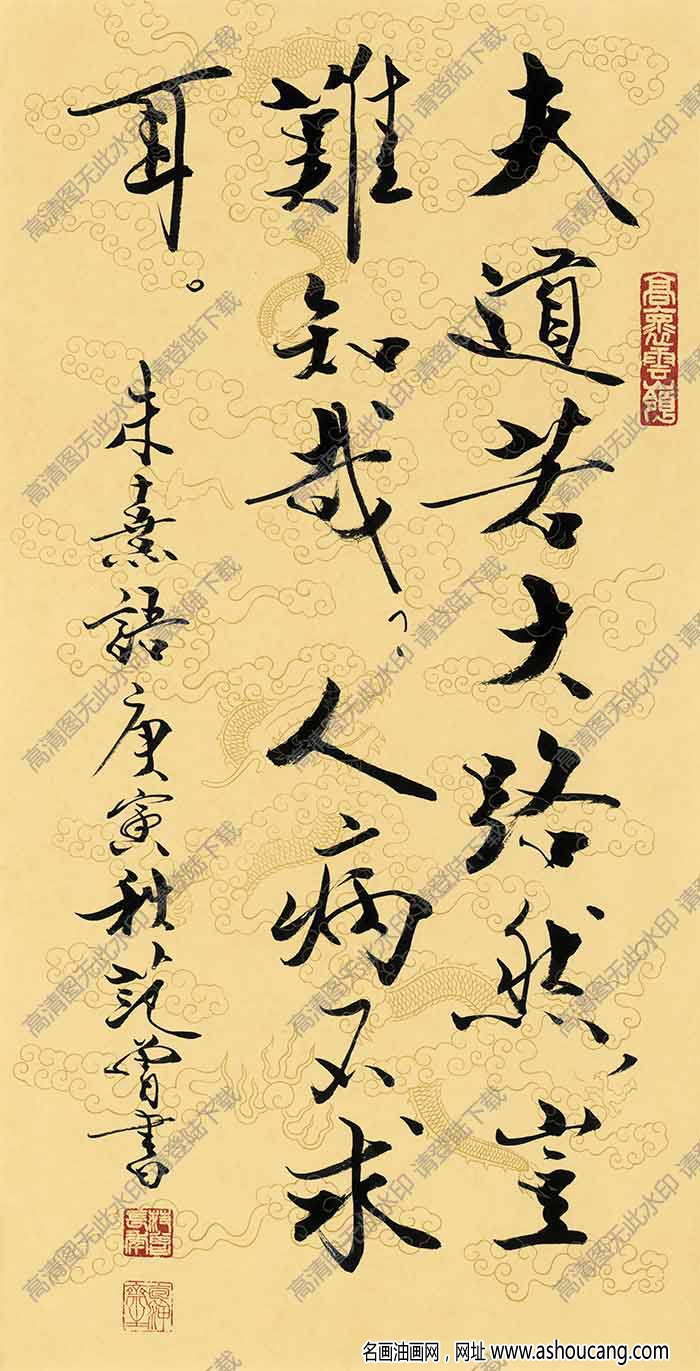 夫道若大路然，豈
難知哉。人病不求
耳。
朱熹語庚寅秋范曾書
高清图无此水印 请登陆下载
名画油画网，网址 www.ashoucang.com